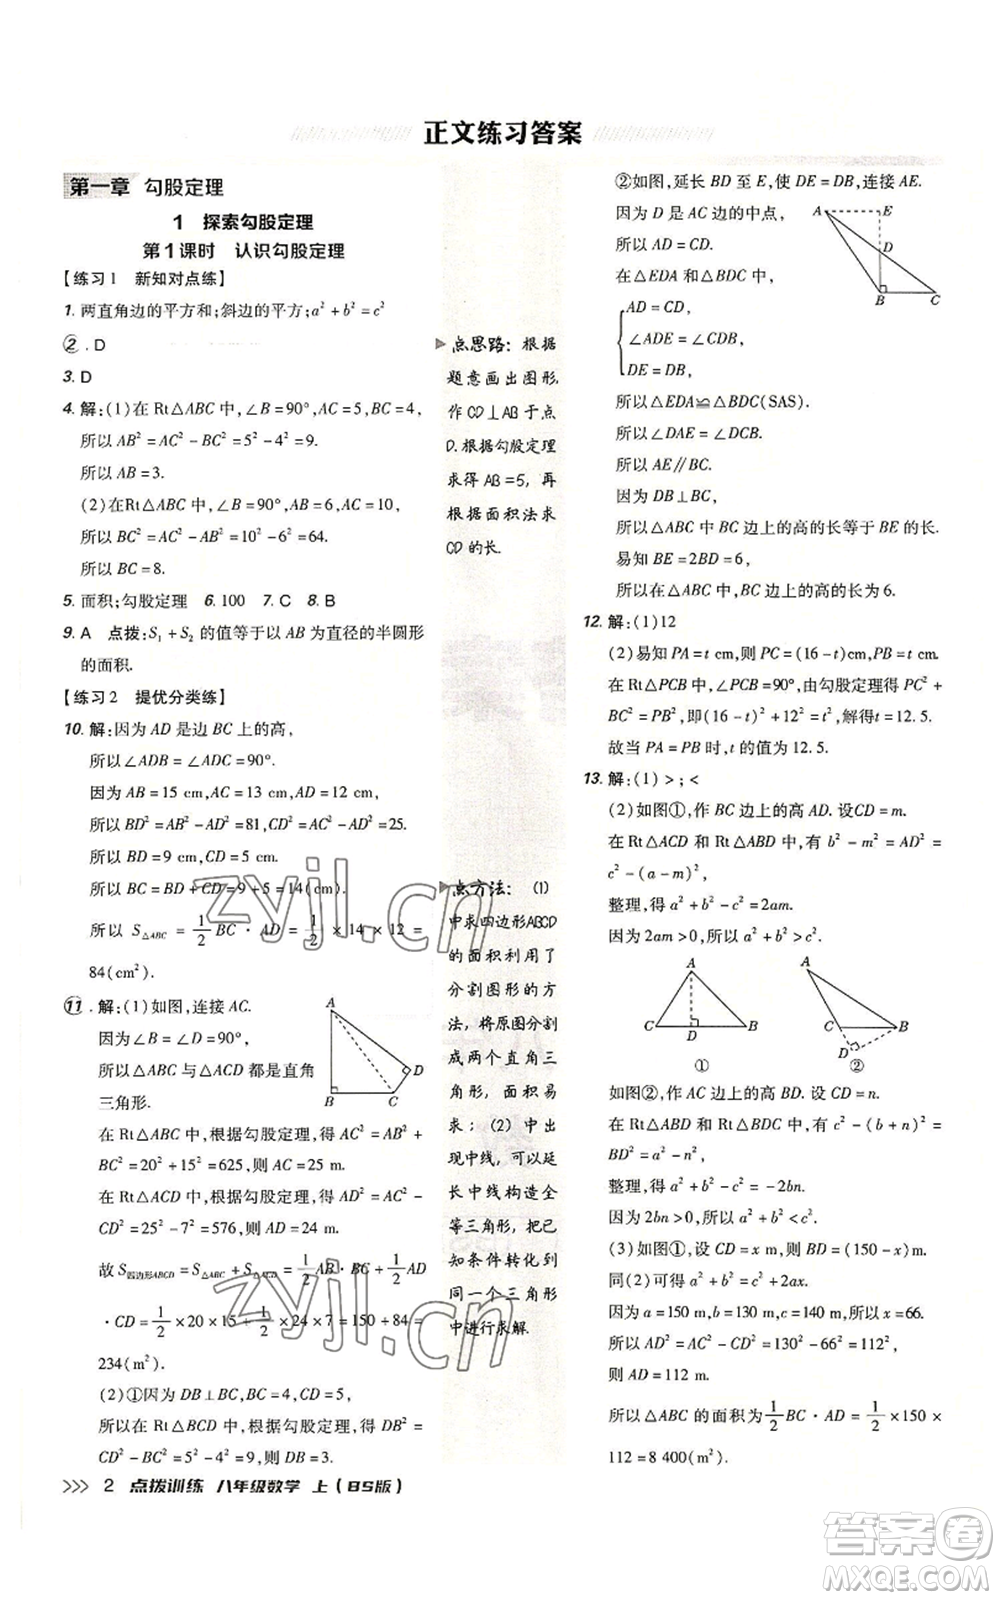 正文练习答案
第一章 勾股定理
1 探索勾股定理
第1课时 认识勾股定理
【练习1 新知对点练】
1. 两直角边的平方和;斜边的平方;a²+b²=c²
2. D
3. D
4. 解:(1)在 Rt△ABC 中,∠B=90°,AC=5,BC=4,
所以 AB²=AC²-BC²=5²-4²=9.
所以 AB=3.
(2)在Rt△ABC 中,∠B=90°,AB=6,AC=10,
所以 BC²=AC²-AB²=10²-6²=64.
所以 BC=8.
5. 面积;勾股定理 6. 100 7. C 8. B
9. A 点拨:S₁+S₂ 的值等于以 AB 为直径的半圆形
的面积.
【练习2 提优分类练】
10. 解:因为 AD 是边 BC 上的高,
所以∠ADB=∠ADC=90°.
因为 AB=15 cm,AC=13 cm,AD=12 cm,
所以 BD²=AB²-AD²=81,CD²=AC²-AD²=25.
所以 BD=9 cm,CD=5 cm.
所以 BC=BD+CD=9+5=14(cm).
所以 S△ABC=1/2 BC·AD=1/2×14×12=
84(cm²).
11. 解:(1)如图,连接 AC.
因为∠B=∠D=90°,
所以△ABC 与△ADC 都是直角
三角形.
在 Rt△ABC 中,根据勾股定理,得 AC²=AB²+
BC²=20²+15²=625,则 AC=25 m.
在 Rt△ACD 中,根据勾股定理,得 AD²=AC²-
CD²=25²-7²=576,则 AD=24 m.
故 S四边形ABCD=S△ABC+S△ACD=1/2 AB·BC+1/2 AD
·CD=1/2×20×15+1/2×24×7=150+84=
234(m²).
(2)①因为 DB⊥BC,BC=4,CD=5,
所以在 Rt△BCD 中,根据勾股定理,得 DB²=
CD²-BC²=5²-4²=9.所以 DB=3.
A
B
C
D
点思路:根据
题意画出图形,
作 CD⊥AB于点
D.根据勾股定理
求得 AB=5,再
根据面积法求
CD的长.
点方法:(1)
中求四边形ABCD
的面积利用了
分割图形的方
法,将原图分割
成两个直角三
角形,面积易
求;(2)中出
现中线,可以延
长中线构造全
等三角形,把已
知条件转化到
同一个三角形
中进行求解.
②如图,延长 BD 至 E,使 DE=DB,连接 AE.
因为 D 是 AC 边的中点,
所以 AD=CD.
在△EDA 和△BDC 中,
AD=CD,
∠ADE=∠CDB,
DE=DB,
所以△EDA≌△BDC(SAS).
所以∠DAE=∠DCB.
所以 AE∥BC.
因为 DB⊥BC,
所以△ABC 中 BC 边上的高的长等于 BE 的长.
易知 BE=2BD=6,
所以在△ABC 中,BC 边上的高的长为 6.
A
E
D
B
C
12. 解:(1)12
(2)易知 PA=t cm,则 PC=(16-t)cm,PB=t cm.
在 Rt△PCB 中,∠PCB=90°,由勾股定理得 PC²+
BC²=PB²,即(16-t)²+12²=t²,解得t=12.5.
故当 PA=PB 时,t 的值为 12.5.
13. 解:(1)>;<
(2)如图①,作 BC 边上的高 AD. 设CD=m.
在 Rt△ACD 和 Rt△ABD 中,有 b²-m²=AD²=
c²-(a-m)²,
整理,得 a²+b²-c²=2am.
因为2am>0,所以 a²+b²>c².
A
C
D
B
①
A
C
B
D
②
如图②,作 AC 边上的高 BD. 设 CD=n.
在 Rt△ABD 和 Rt△BCD 中,有 c²-(b+n)²=
BD²=a²-n²,
整理,得 a²+b²-c²=-2bn.
因为2bn>0,所以 a²+b²<c².
(3)如图①,设 CD=x m,则 BD=(150-x)m.
同(2)可得 a²+b²-c²=2ax.
因为 a=150 m,b=130 m,c=140 m,所以 x=66.
所以 AD²=AC²-CD²=130²-66²=12 544,
则 AD=112 m.
所以△ABC 的面积为1/2 BC·AD=1/2×150×
112=8 400(m²).
>>> 2 点拨训练 八年级数学 上(BS版)
zyjl.cn
zyjl.cn
答案卷
MXQE.COM